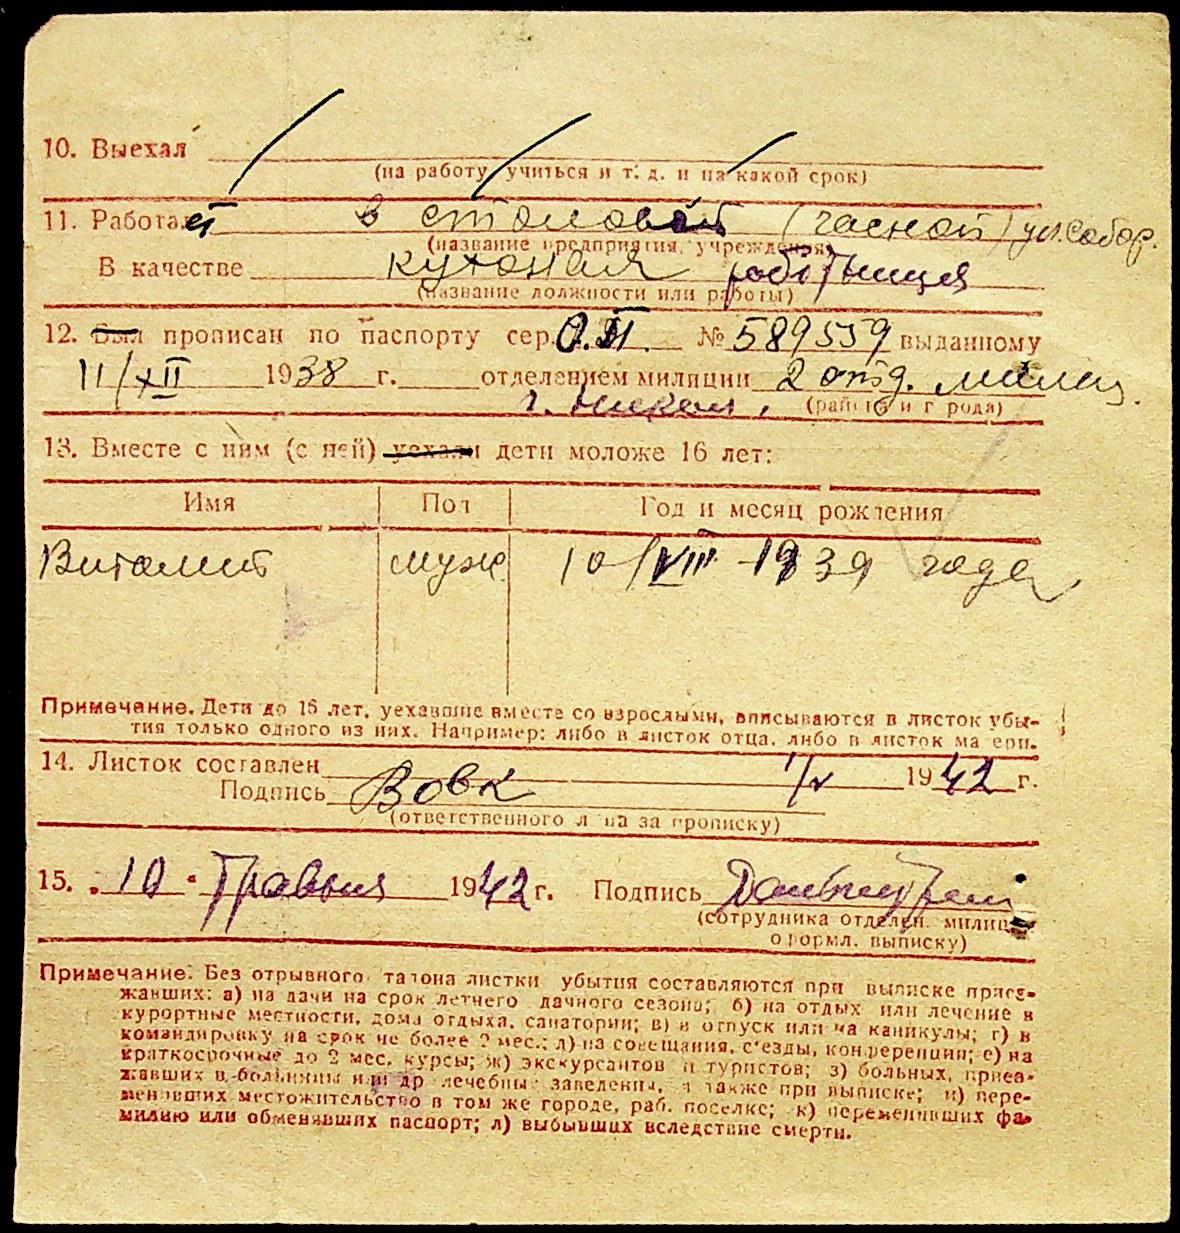 10. Выехал
(на работу, учиться и т. д. и на какой срок)
11. Работает в столовой (часной) ул. Собор.
(название предприятия, учреждения)
В качестве кухоная робітниця
(название должности или работы)
12. Был прописан по паспорту сер. О.П. № 589559 выданному
11/XII 1938 г. отделением милиции 2 отд. милиц.
г. Никол. (район и город)
13. Вместе с ним (с ней) уехали дети моложе 16 лет:
Имя Пол Год и месяц рождения
Виталий муж 10/VIII 1939 года
Примечание. Дети до 16 лет, уехавшие вместе со взрослыми, вписываются в листок убы-
тия только одного из них. Например: либо в листок отца, либо в листок матери.
14. Листок составлен 1/V 1942 г.
Подпись Вовк
(ответственного лица за прописку)
15. „10“ Травня 1942 г. Подпись
(сотрудника отделен. милиции
оформл. выписку)
Примечание: Без отрывного талона листки убытия составляются при выписке приез-
жавших: а) на дачи на срок летнего дачного сезона; б) на отдых или лечение в
курортные местности, дома отдыха, санатории; в) в отпуск или на каникулы; г) в
командировку на срок не более 2 мес.; д) на совещания, с'езды, конференции; е) на
краткосрочные до 2 мес. курсы; ж) экскурсантов и туристов; з) больных, приез-
жавших в больницы или др лечебные заведения, а также при выписке; и) пере-
менивших местожительство в том же городе, раб. поселке; к) переменивших фа-
милию или обменявших паспорт; л) выбывших вследствие смерти.